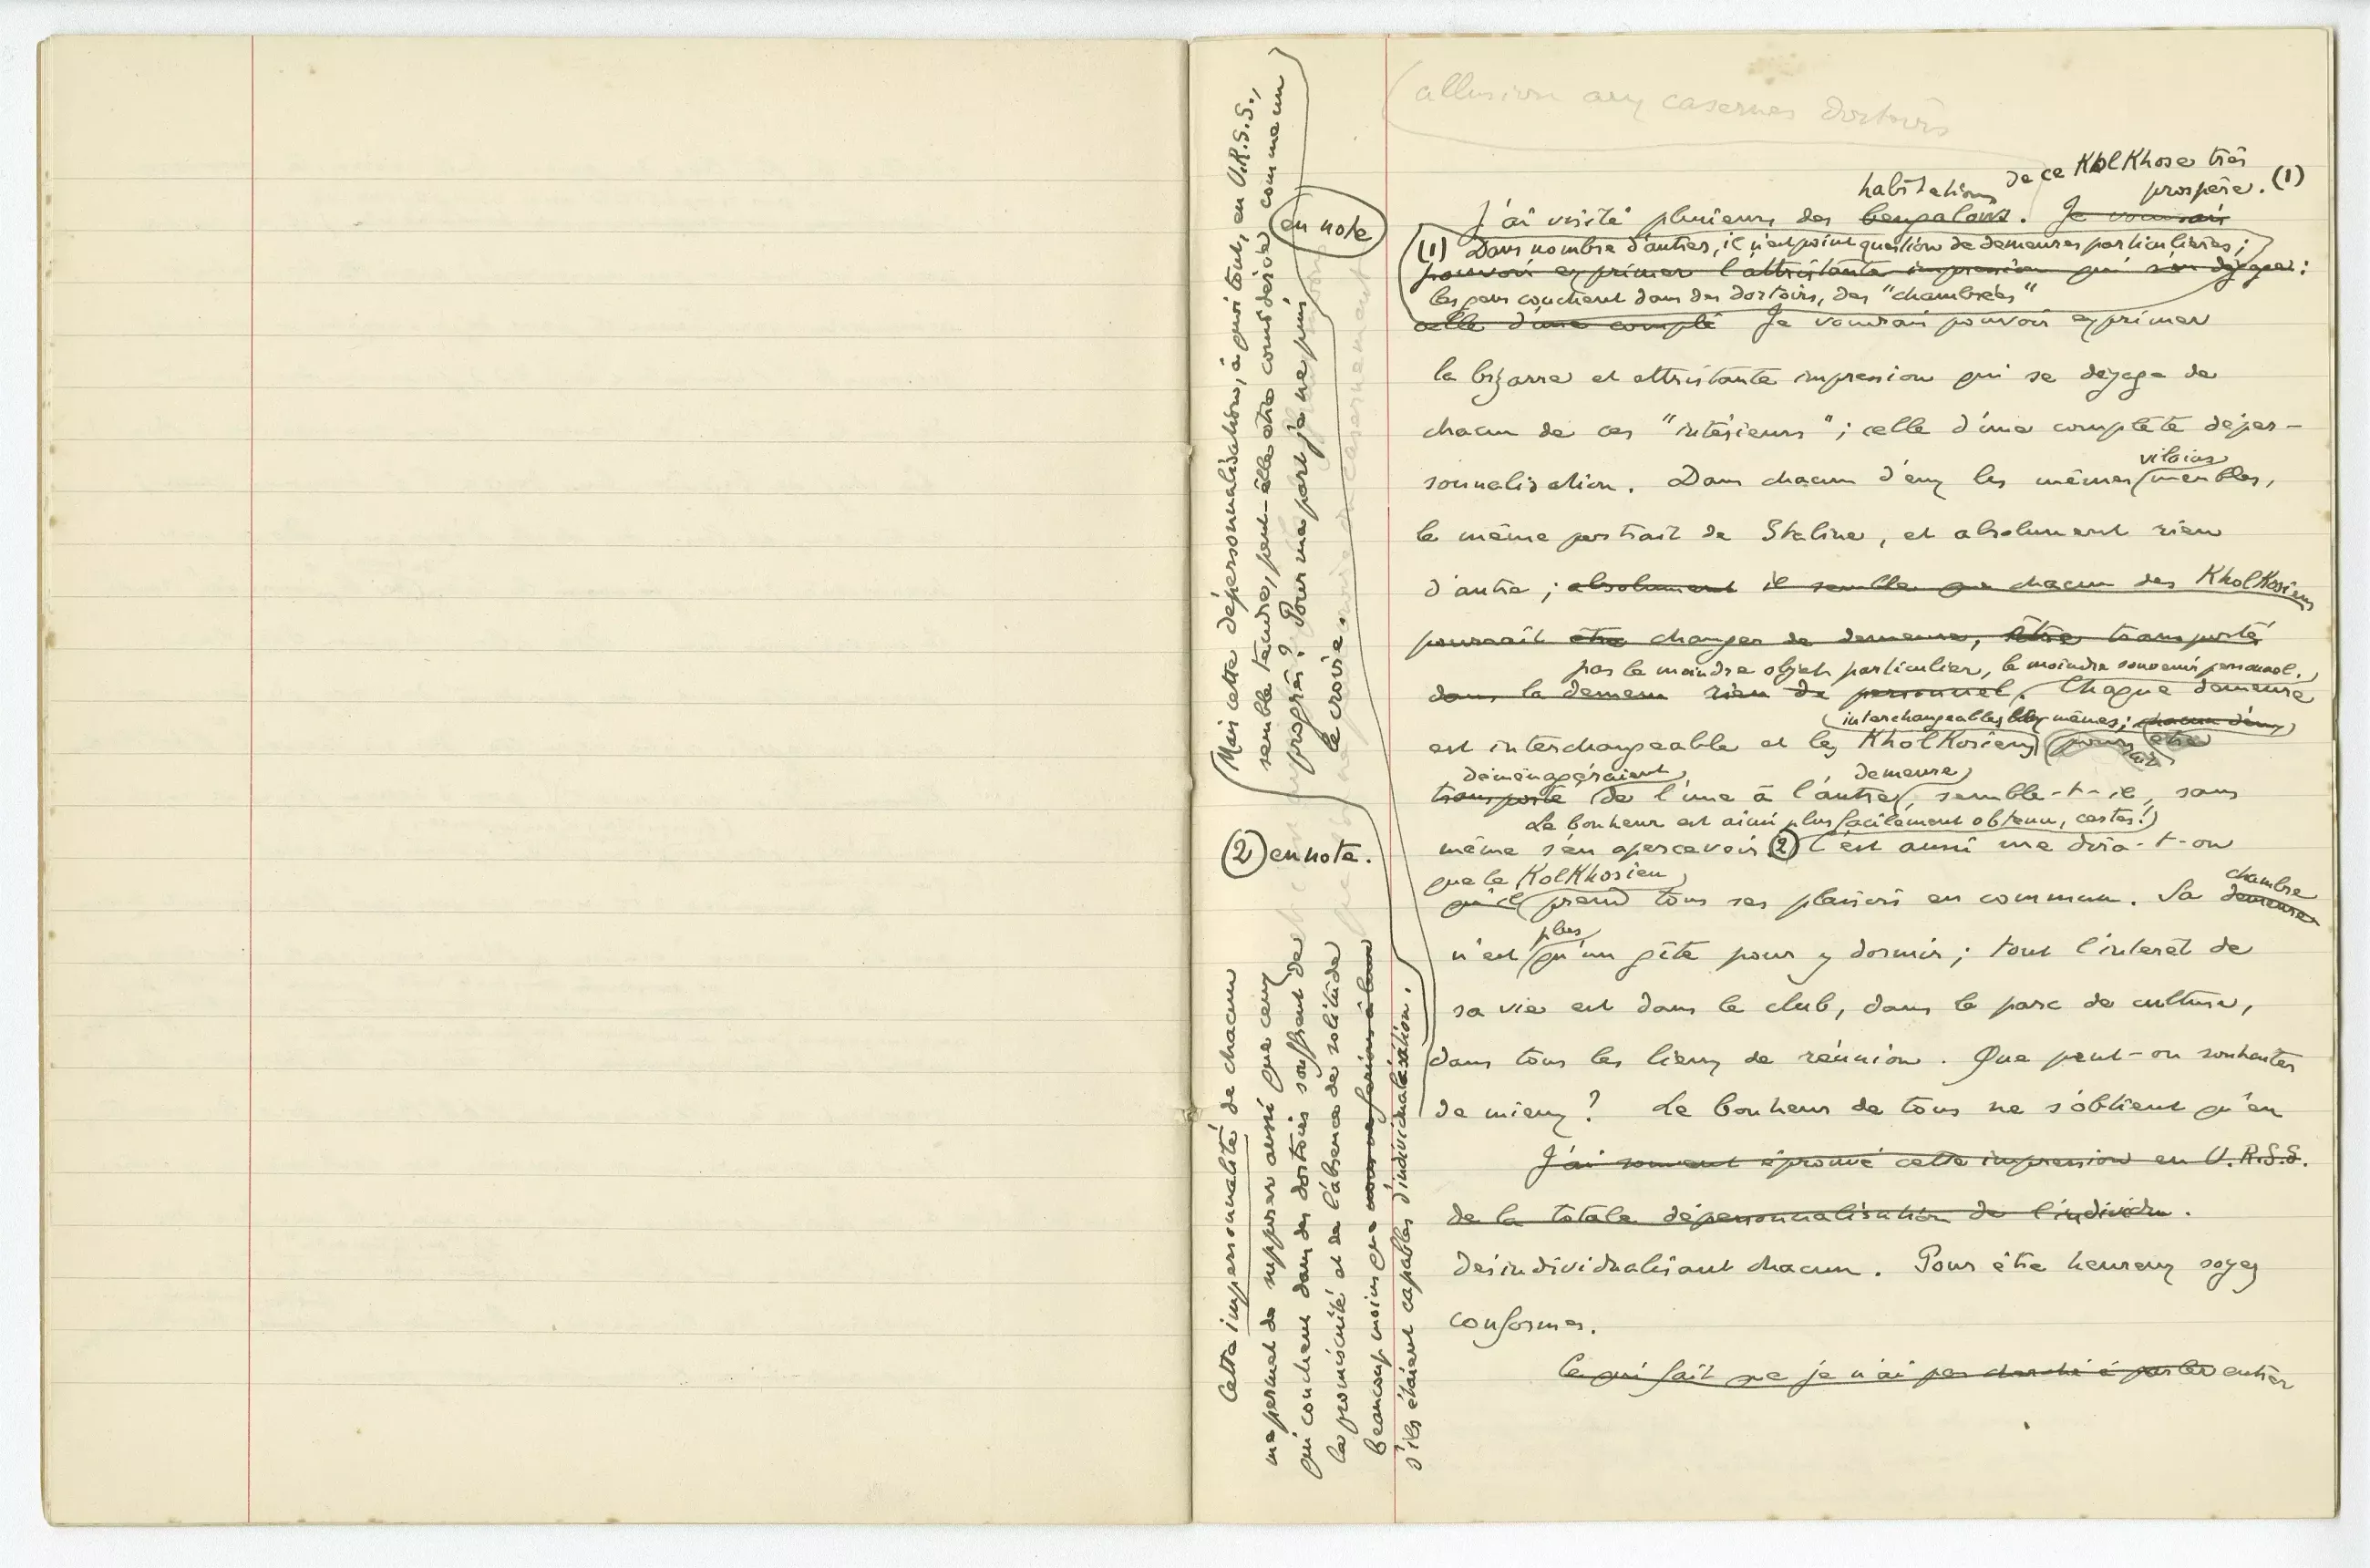 (allusion aux casernes dortoirs
habitations de ce KholKhose très
prospère. (1)
J'ai visité plusieurs des bengalows. Je voudrais
(1) Dans nombre d'autres, il n'est point question de demeures particulières ;
pouvoir exprimer l'attristante impression qui s'en dégage :
les gens couchent dans des dortoirs, des "chambrées"
celle d'une complè Je voudrais pouvoir exprimer
la bizarre et attristante impression qui se dégage de
chacun de ces "intérieurs" ; celle d'une complète déper-
sonnalisation. Dans chacun d'eux les mêmes vilains meubles,
le même portrait de Staline, et absolument rien
d'autre ; absolument il semble que chacun des KholKosiens
pourrait être changer de demeure, être transporté
pas le moindre objet particulier, le moindre souvenir personnel.
dans la demeure rien de personnel. Chaque demeure
interchangeables eux mêmes ; chacun d'eux
est interchangeable et les KholKosiens être
déménageraient demeure
transporté de l'une à l'autre, semble-t-il, sans
Le bonheur est ainsi plus facilement obtenu, certes !
même s'en apercevoir (2) C'est aussi me dira-t-on
que le KolKhosien chambre
qu'il prend tous ses plaisirs en commun. Sa demeure
plus
n'est qu'un gîte pour y dormir ; tout l'interêt de
sa vie est dans le club, dans le parc de culture,
dans tous les lieux de réunion. Que peut-on souhaiter
de mieux ? Le bonheur de tous ne s'obtient qu'en
J'ai souvent éprouvé cette impression en U.R.S.S.
de la totale dépersonnalisation de l'individu.
désindividualisant chacun. Pour être heureux soyez
conformes.
Ce qui fait que je n'ai pas cherché à parler entrer
en note
Mais cette dépersonnalisation, à quoi tout, en U.R.S.S.,
semble tendre, peut-elle être considérée comme un
progrès ? Pour ma part je ne puis
le croire
(2) en note.
Cette impersonnalité de chacun
me permet de supposer aussi que ceux
qui couchent dans des dortoirs souffrent de
la promiscuité et de l'absence de solitude
beaucoup moins que nous ne ferions à leur
s'ils étaient capables d'individualisation.